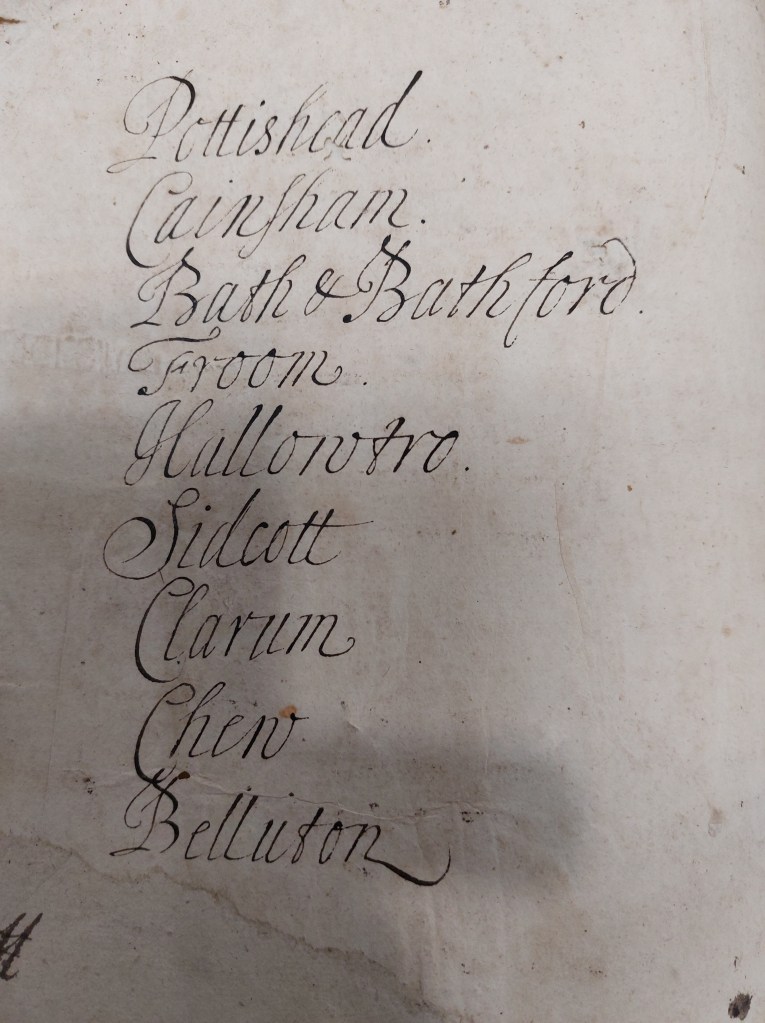 Pottishead.
Cainsham.
Bath & Bathford.
Froom.
Hallowtro.
Sidcott
Clarum
Chew
Belluton